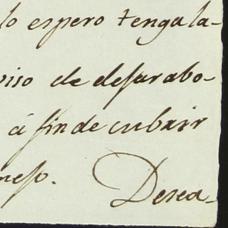 lo espero tenga la-
viso de desarabo-
á fin de cubrir
neso. Desea-